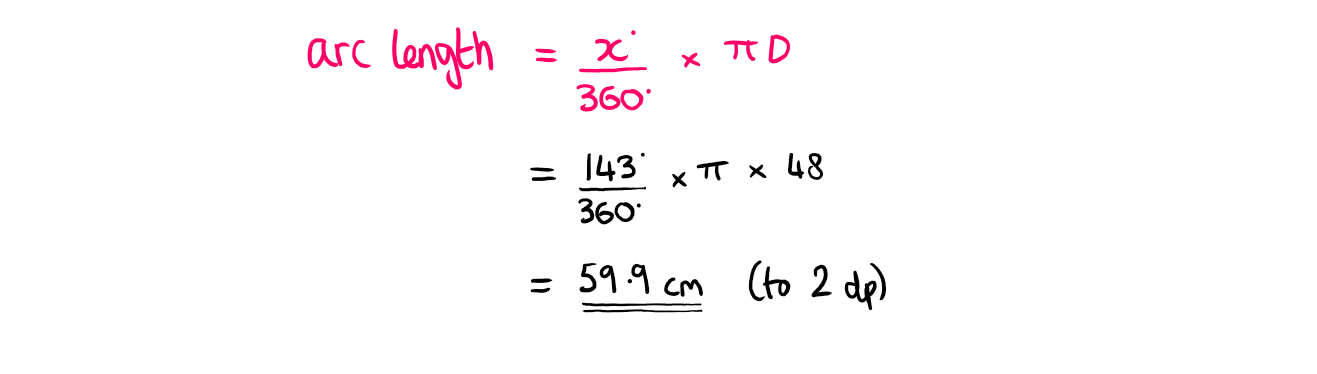 arc length = x°/360° × πD
= 143°/360° × π × 48
= 59.9 cm (to 2 dp)